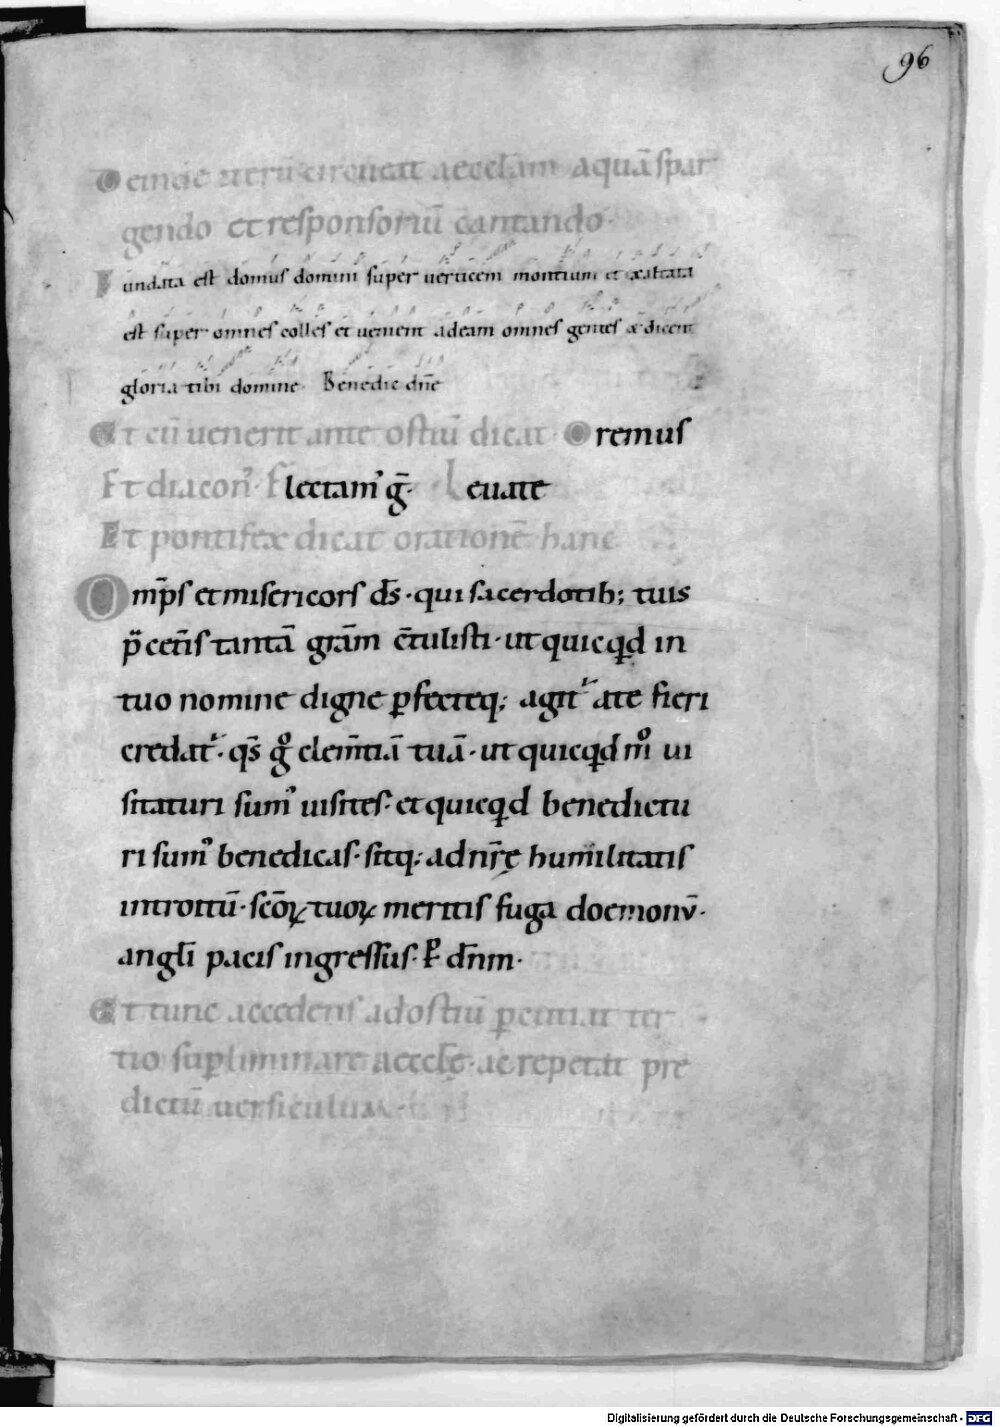 96
Deinde iterū circueat aeccl̄am aquā spar
gendo et responsoriū cantando·
Fundata est domus domini super uerticem montium et exaltata
est super omnes colles et uenient ad eam omnes gentes & dicent
gloria tibi domine· Benedic dn̄e
Et cū uenerit ante ostiū dicat Oremus
Et diacon᾿· Flectam᾿ ḡ· Leuate
Et pontifex dicat orationē hanc
Omp̄s et misericors d̄s· qui sacerdotib; tuis
p̄ cet̄is tantā grām c̄tulisti· ut quicqͥd in
tuo nomine digne ꝑfecteq; agit᾿ ate fieri
credat᾿· qs̄ gͦ clem̄tiā tuā· ut quicqͥd mͦ ui
sitaturi sum᾿ uisites· et quicqͥd benedictu
ri sum᾿ benedicas· sitq; ad nr̄ę humilitatis
introitū· scōꝝ tuoꝝ meritis fuga doemonū·
angl̄i pacis ingressus· P dn̄m·
Et tunc accedens ad ostiū ꝑcutiat ter
tio suꝑliminare aecclę̄· ac repetat pre
dictū uersiculum·
Digitalisierung gefördert durch die Deutsche Forschungsgemeinschaft - DFG